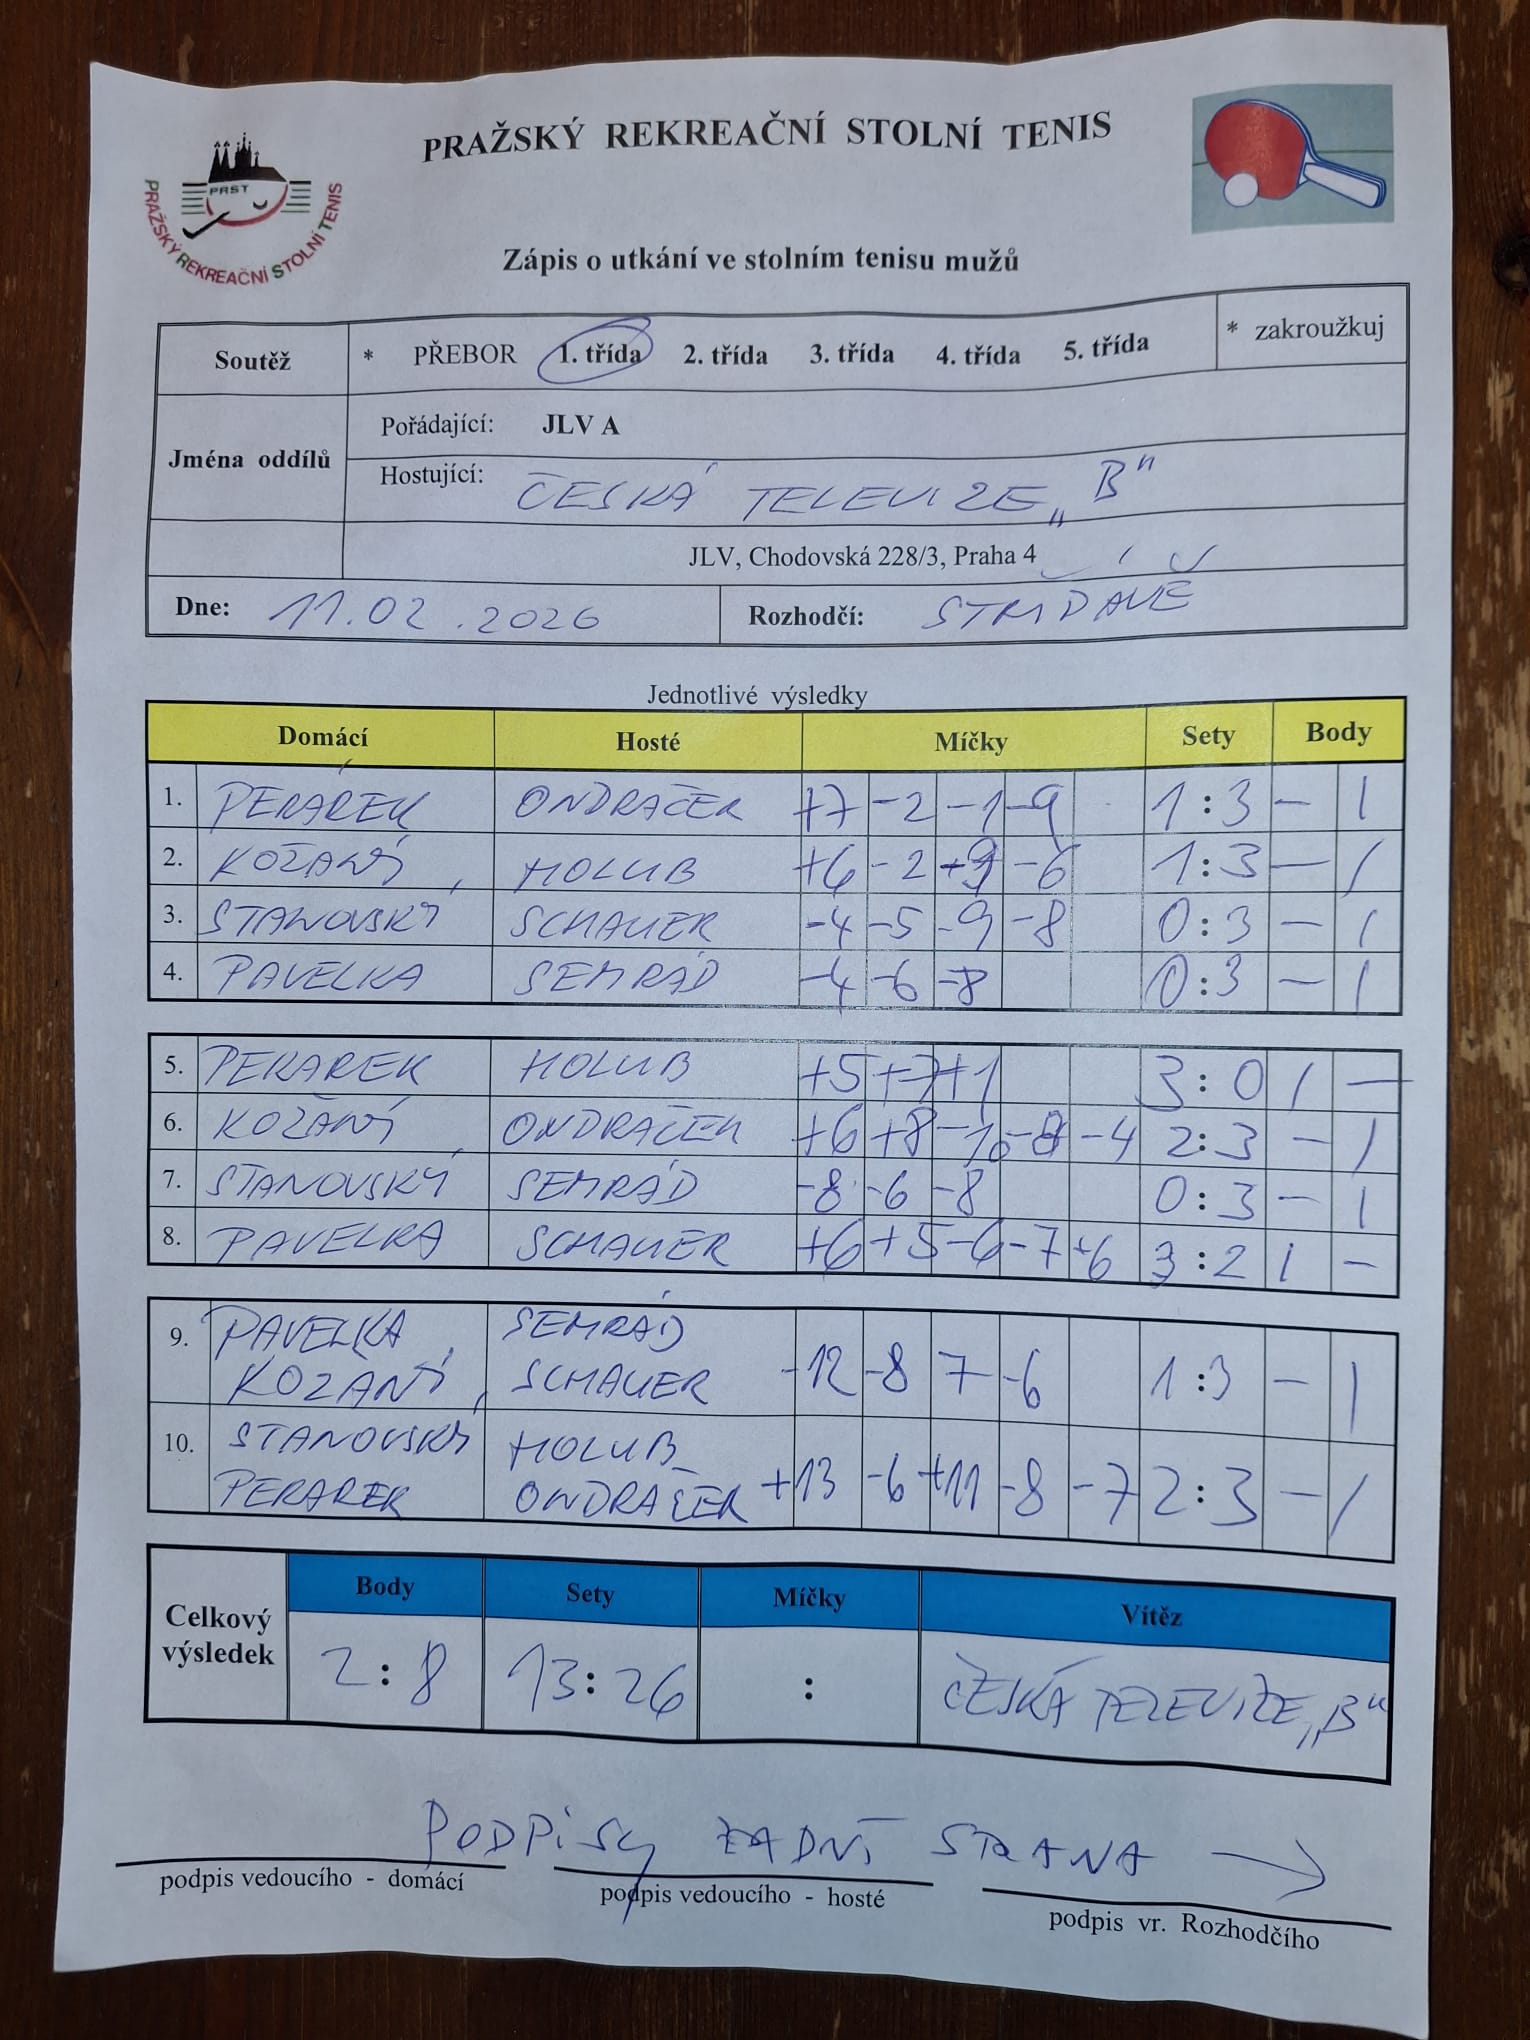 PRAŽSKÝ REKREAČNÍ STOLNÍ TENIS
PRST
PRAŽSKÝ REKREAČNÍ STOLNÍ TENIS
Zápis o utkání ve stolním tenisu mužů
Soutěž * PŘEBOR 1. třída 2. třída 3. třída 4. třída 5. třída * zakroužkuj
Jména oddílů
Pořádající: JLV A
Hostující: ČESKÁ TELEVIZE „B"
JLV, Chodovská 228/3, Praha 4
Dne: 11.02.2026 Rozhodčí: STŘÍDAVĚ
Jednotlivé výsledky
Domácí Hosté Míčky Sety Body
1. PEKÁREK ONDRAČEK +7 -2 -1 -9 1:3 - 1
2. KOŽANÝ HOLUB +6 -2 +9 -6 1:3 - 1
3. STANOVSKÝ SCHAUER -4 -5 -9 -8 0:3 - 1
4. PAVELKA SEMRÁD -4 -6 -8 0:3 - 1
5. PEKAREK HOLUB +5 +7 +1 3:0 1 -
6. KOŽANÝ ONDRAČEK +6 +8 -10 -8 -4 2:3 - 1
7. STANOVSKÝ SEMRÁD -8 -6 -8 0:3 - 1
8. PAVELKA SCHAUER +6 +5 -6 -7 +6 3:2 1 -
9. PAVELKA SEMRÁD
KOZANÝ SCHAUER -12 -8 7 -6 1:3 - 1
10. STANOVSKÝ HOLUB
PEKAREK ONDRAČEK +13 -6 +11 -8 -7 2:3 - 1
Celkový výsledek Body Sety Míčky Vítěz
2:8 13:26 : ČESKÁ TELEVIZE „B"
PODPISY ZADNÍ STRANA →
podpis vedoucího - domácí
podpis vedoucího - hosté
podpis vr. Rozhodčího